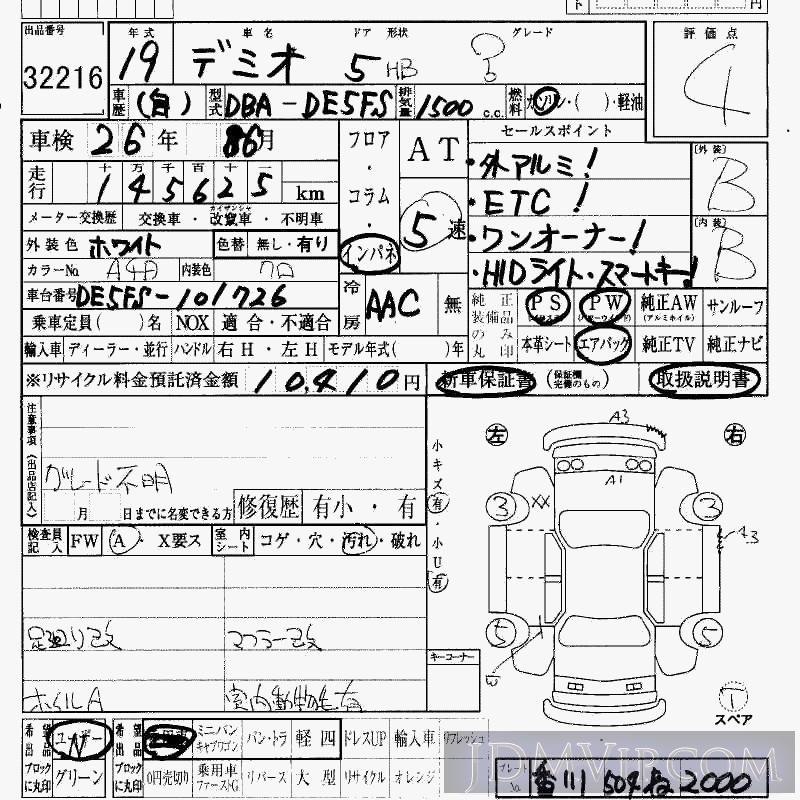 出品番号 年式 車名 ドア 形状 グレード 評価点
32216 19 デミオ 5 HB ? 4
車歴 (自) 型式 DBA-DE5FS 排気量 1500 c.c. 燃料 ガソリン・( )・軽油
車検 26年 月 フロア・コラム・インパネ AT 5速 セールスポイント
・外アルミ! [外装] B
・ETC!
・ワンオーナー! [内装] B
・HIDライト・スマートキー!
十 万 千 百 十 一
走行 145625 km
メーター交換歴 交換車・改竄車・不明車
外装色 ホワイト 色替 無し・有り
カラーNo. A4D 内装色 クロ
車台番号 DE5FS-101726 冷房 AAC 無
純正装備品のみ丸印 PS PW 純正AW (アルミホイル) サンルーフ
乗車定員( )名 NOX 適合・不適合 本革シート エアバッグ 純正TV 純正ナビ
輸入車 ディーラー・並行 ハンドル 右H・左H モデル年式( )年
※リサイクル料金預託済金額 10,410円 新車保証書 (保証欄完備のもの) 取扱説明書
注意事項(出品店記入)
グレード不明
月 日までに名変できる方 修復歴 有小・有
小キズ(有)・小U(有)
検査員記入 FW A・X要ス 室内シート コゲ・穴・汚れ・破れ
足廻り改 マフラー改
ホイルA 室内動物毛有
キーコーナー
左 A3 右
A1
3 XX 3 A3
5 W 5
T
スペア
希望出品ブロックに丸印 ユーザー N グリーン
希望出品ブロックに丸印 ミニバン キャブワゴン バン・トラ 軽四 ドレスUP 輸入車 リフレッシュ
0円売切り 乗用車 ファーストG リバース 大型 リサイクル オレンジ
プレートNo. 香川 504 ね 2000
JDMVIP.COM